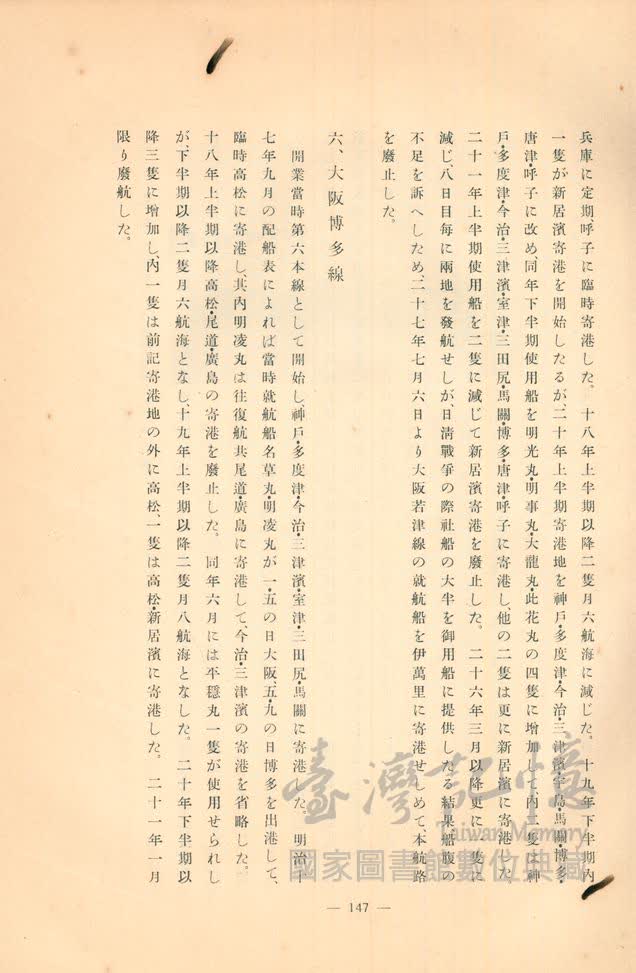 兵庫に定期、呼子に臨時寄港した。 十八年上半期以降二隻月六航海に減じた。 十九年下半期內
一隻が新居濱寄港を開始したるが、二十年上半期寄港地を神戶・多度津・今治・三津濱・宇島・馬關・博多・
唐津・呼子に改め、同年下半期使用船を明光丸・明事丸・大龍丸・此花丸の四隻に增加して、內二隻は神
戶・多度津・今治・三津濱・室津・三田尻・馬關・博多・唐津・呼子に寄港し、他の二隻は更に新居濱に寄港した。
二十一年上半期使用船を二隻に減じて新居濱寄港を廢止した。 二十六年三月以降更に一隻に
減じ、八日目每に兩地を發航せしが、日淸戰爭の際社船の大半を御用船に提供したる結果船腹の
不足を訴へしため、二十七年七月六日より大阪若津線の就航船を伊萬里に寄港せしめて、本航路
を廢止した。
六、大阪博多線
開業當時第六本線として開始し、神戶・多度津・今治・三津濱・室津・三田尻・馬關に寄港した。 明治十
七年九月の配船表によれば當時就航船名草丸・明凌丸が一・五の日大阪、五・九の日博多を出港して、
臨時高松に寄港し、共內明凌丸は往復航共尾道・廣島に寄港して、今治・三津濱の寄港を省略した。
十八年上半期以降高松・尾道・廣島の寄港を廢止した。 同年六月には平穩丸一隻が使用せられし
が、下半期以降二隻月六航海となし、十九年上半期以降二隻月八航海となした。 二十年下半期以
降三隻に增加し、內一隻は前記寄港地の外に高松、一隻は高松・新居濱に寄港した。 二十一年一月
限り廢航した。
— 147 —
臺灣記憶
Taiwan Memory
國家圖書館數位典藏